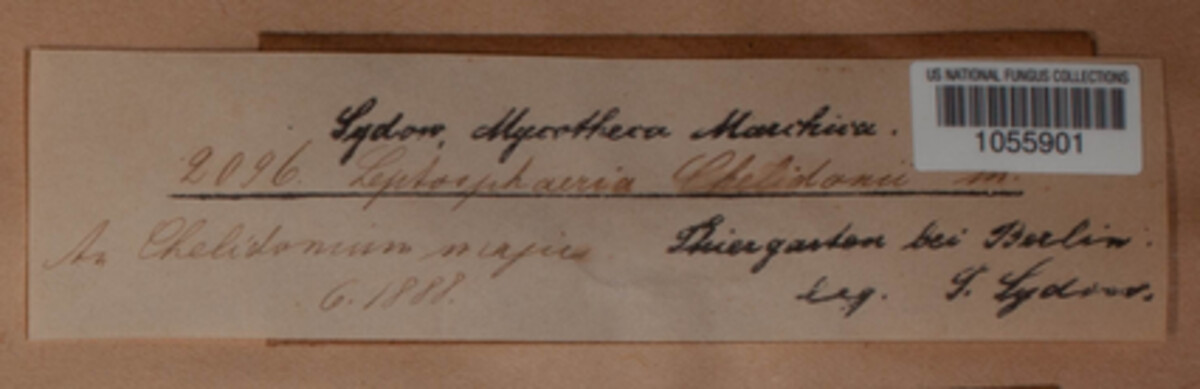 US NATIONAL FUNGUS COLLECTIONS
1055901
Sydow, Mycotheca Marchica.
2096. Leptosphaeria Chelidonii m.
An Chelidonium majus
6. 1888.
Thiergarten bei Berlin.
leg. P. Sydow.